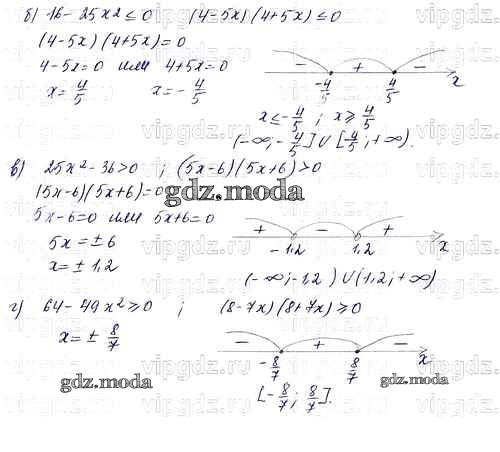 б) 16 - 25x² ≤ 0   (4 - 5x)(4 + 5x) ≤ 0
(4 - 5x)(4 + 5x) = 0
4 - 5x = 0 или 4 + 5x = 0
x = 4/5   x = - 4/5
- + -
-4/5   4/5   x
x ≤ - 4/5 ; x ≥ 4/5
(-∞; - 4/5] ∪ [4/5; +∞).
в) 25x² - 36 > 0 ; (5x - 6)(5x + 6) > 0
(5x - 6)(5x + 6) = 0
gdz.moda
5x - 6 = 0 или 5x + 6 = 0
5x = ± 6
x = ± 1,2
+ - +
- 1,2   1,2   x
(-∞; -1,2) ∪ (1,2; +∞)
г) 64 - 49x² ≥ 0 ; (8 - 7x)(8 + 7x) ≥ 0
x = ± 8/7
- + -
- 8/7   8/7   x
gdz.moda
gdz.moda
[- 8/7; 8/7].
vipgdz.com